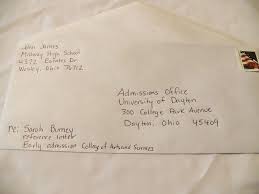 John James
Midway High School
4372 Estates Dr.
Wesley, Ohio 76712
Admissions Office
University of Dayton
300 College Park Avenue
Dayton, Ohio 45409
Re: Sarah Burney
reference letter
Early admission College of Arts and Sciences